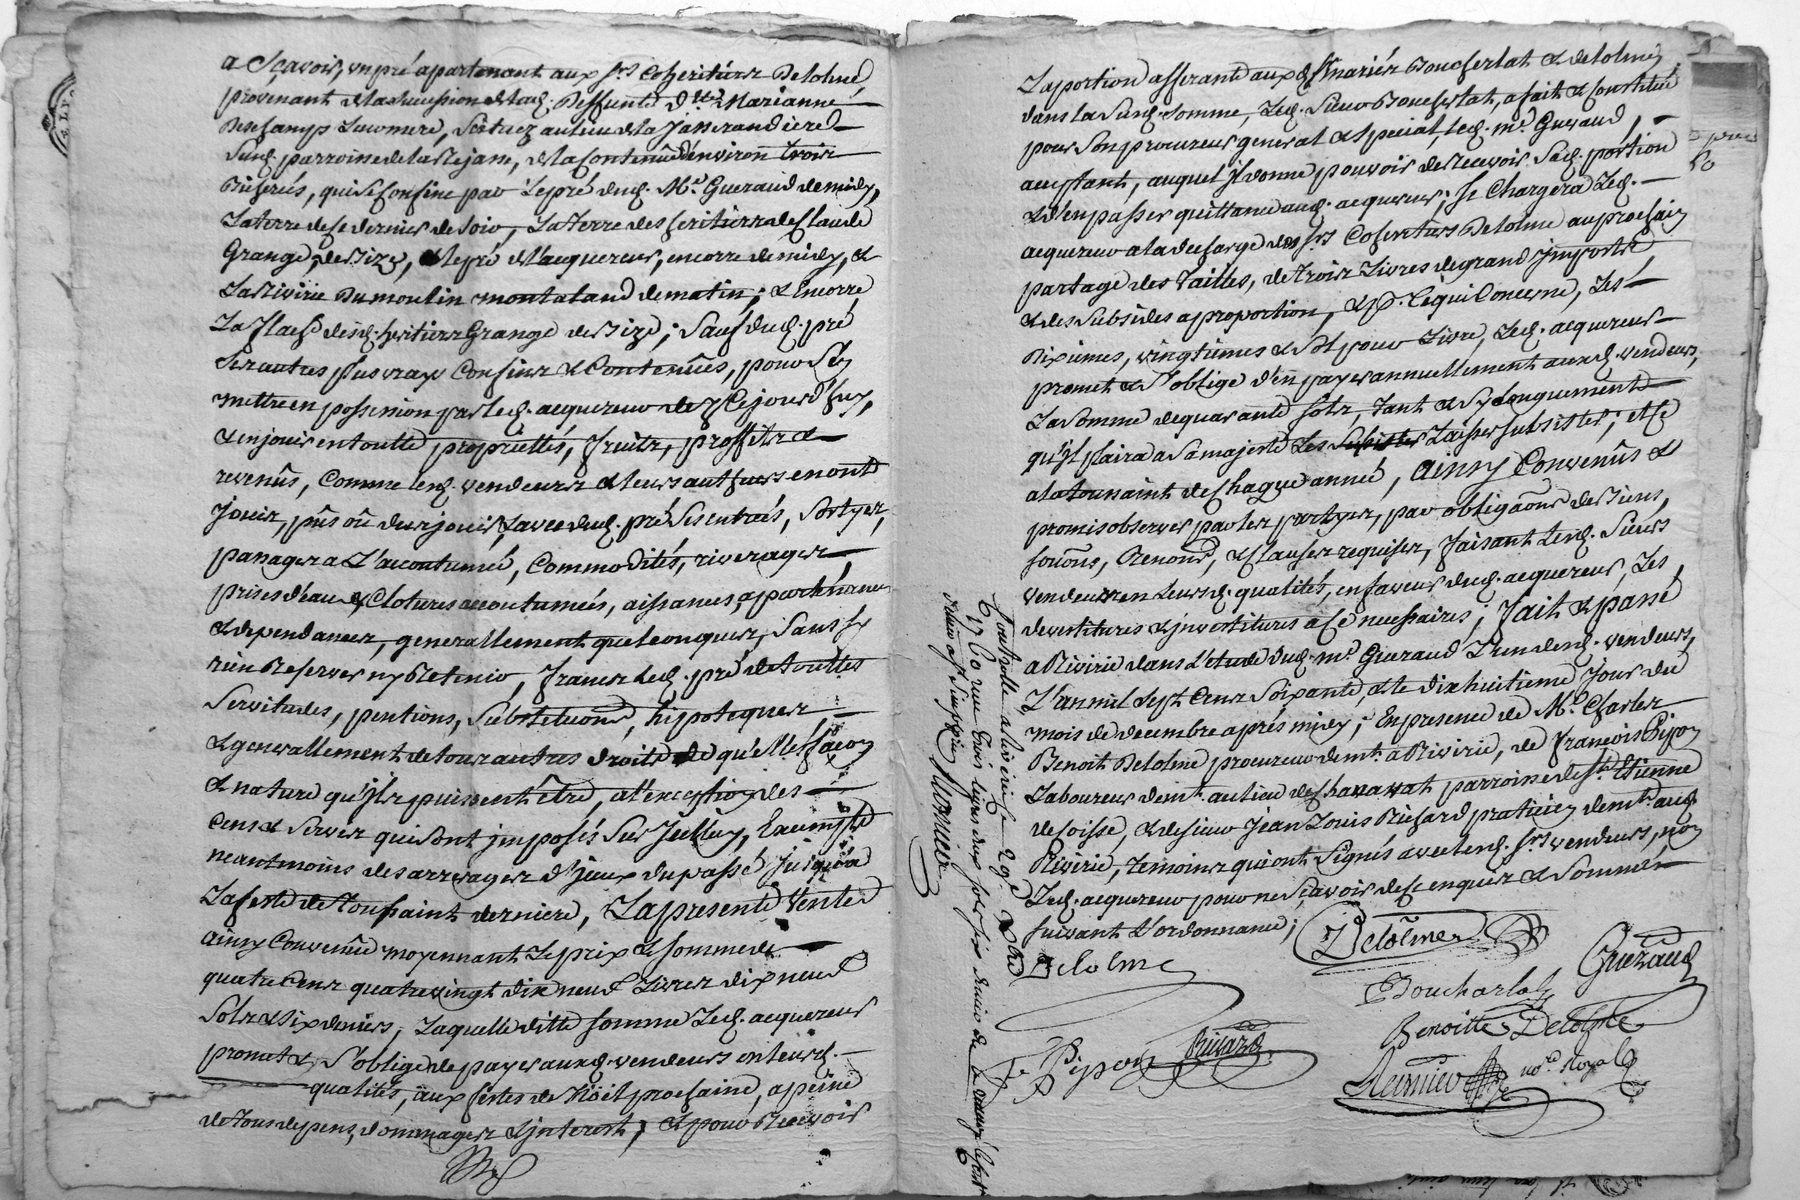 a Sçavoir, un pré apartenant aux srs Coheritiers Delolme
provenant de la succession de lad. Deffunte dlle Marianne
Deschamp leur mere, Scitué au lieu de la Janerandiere
Susd. parroisse de la Rejasse, de la contenûe d'environ trois
Bicherés, qui se confine par le pré dud. Me. Gueraud de midy,
la terre de ce dernier de soir, la terre des heritiers de Claude
Grange, de bize, & le pré de l'acquereur, encorre de midy, &
la Riviere du moulin montaland de matin; & Encorre
la place desd. heritiers Grange de bize; Sauf dud. pré
Ses autres plus vrays Confins & Contenûes, pour S'en
mettre en possession par led. acquereur dez ce jourd'huy,
& en jouir en toutte proprietté, fruits, proffits &
revenûs, Comme lesd. vendeurs & leurs autheurs en ont
Joüir, pûs oû dus jouir, & avec dud. pré Ses entrées, Sortyes,
passages a l'accoutumée, Commodités, riverages
prises d'eau & Clotures accoutumées, aisances, appartenances
& dependances, generallement quelconques, Sans s'y
rien Reserver ny Retenir, francs led. pré de touttes
Servitudes, pentions, Substitutions, hipoteques
& generallement de tous autres droits de qu'elle façon
& nature qu'ils puissent être, a l'exception des
Cens & Servis qui sont imposés Sur Icelluy, Exempte
neantmoins des arrerages d'yceux du passé jusqu'a
la feste de Toussaint derniere, la presente Vente
ainsy Convenûe moyennant le prix & somme de
quatre Cens quatre vingt dix neuf livres dix neuf
Sols & Six deniers, laquelle ditte somme led. acquereur
promet & S'oblige de payer auxd. vendeurs en leursd.
qualités, aux fêtes de Noël prochaine, a peine
de tous depens, dommages & interest, & pour Recevoir
la portion afferante aux dts mariés Boucherlat & delolme
dans la Susd. Somme, led. Sieur Boucherlat, a fait & constitué
pour Son procureur general & special, led. me. Gueraud,
acceptant, auquel il donne pouvoir de Recevoir Sad. portion
& d'en passer quittance aud. acquereur; Se Chargera led.
acquereur a la decharge des srs Coheritiers Delolme au prochain
partage des Tailles, de trois livres de grand importe
& des Subsides a proportion, & pr. Ce qui Concerne, les
Dixiemes, vingtiemes & Sol pour livre, led. acquereur
promet & S'oblige d'en payer annuellement auxd. vendeurs,
la Somme de quarante sols, tant & Sy longuement
qu'il plaira a Sa majesté les laisser subsister; & ce
a la toussaint de chaque année, ainsy Convenûs &
promis observer par les partyes, par obligaôns de biens,
soûmons, Renonôns, & Clauses requises, faisant lesd. Sieurs
vendeurs en leursd. qualités, en faveur dud. acquereur, les
devestitures & investitures a ce necessaires; fait & passé
a Riviriè dans l'etude dud. me. Gueraud l'un desd. vendeurs,
l'an mil Sept Cens Soixante, & le dix huitieme Jour du
mois de decembre apres midy; En presence de Me. Charles
Benoit Delolme procureur demt. a Riviriè, de françois Pipon
laboureur demt. au lieu de Chavassat parroisse de St. Etienne
de Coisse, & de sieur Jean Louis Richard praticien demt. aud.
Riviriè, temoins qui ont Signés avec lesd. srs vendeurs, non
led. acquereur pour ne Sçavoir de ce enquis & Sommé
suivant l'ordonnance;
Delolme
Delolme
Gueraud
Boucharlat
Benoitte Delolme
f. Pipon
Richard
Mernier no.re Royal
Controllé a Riviriè le 29e Xbre
1760 reçu trois livres deux sols six deniers
Mernier